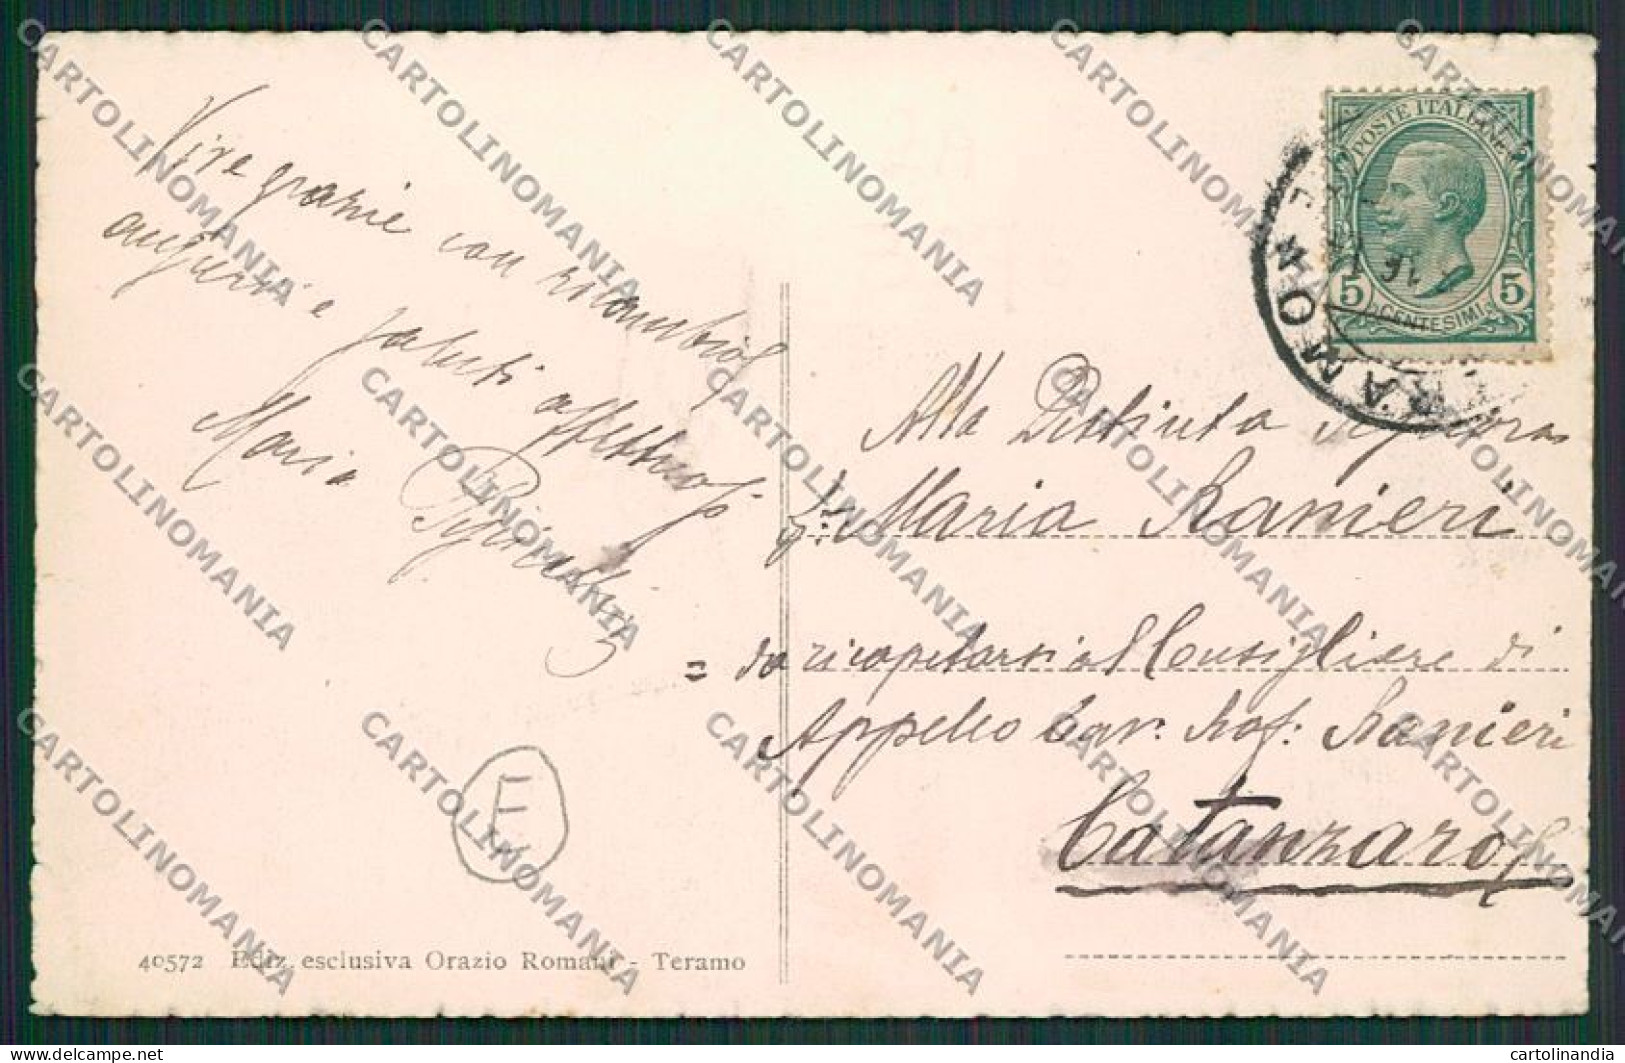 Vive grazie con
auguri e saluti
Maria
POSTE ITALIANE
5 5
CENTESIMI
Alla Distinta Signora
Maria Ranieri
= da ricapitarsi al Consigliere di
Appello Cav. Prof: Ranieri
Catanzaro
40572 Ediz. esclusiva Orazio Romani - Teramo
CARTOLINOMANIA
cartolinandia